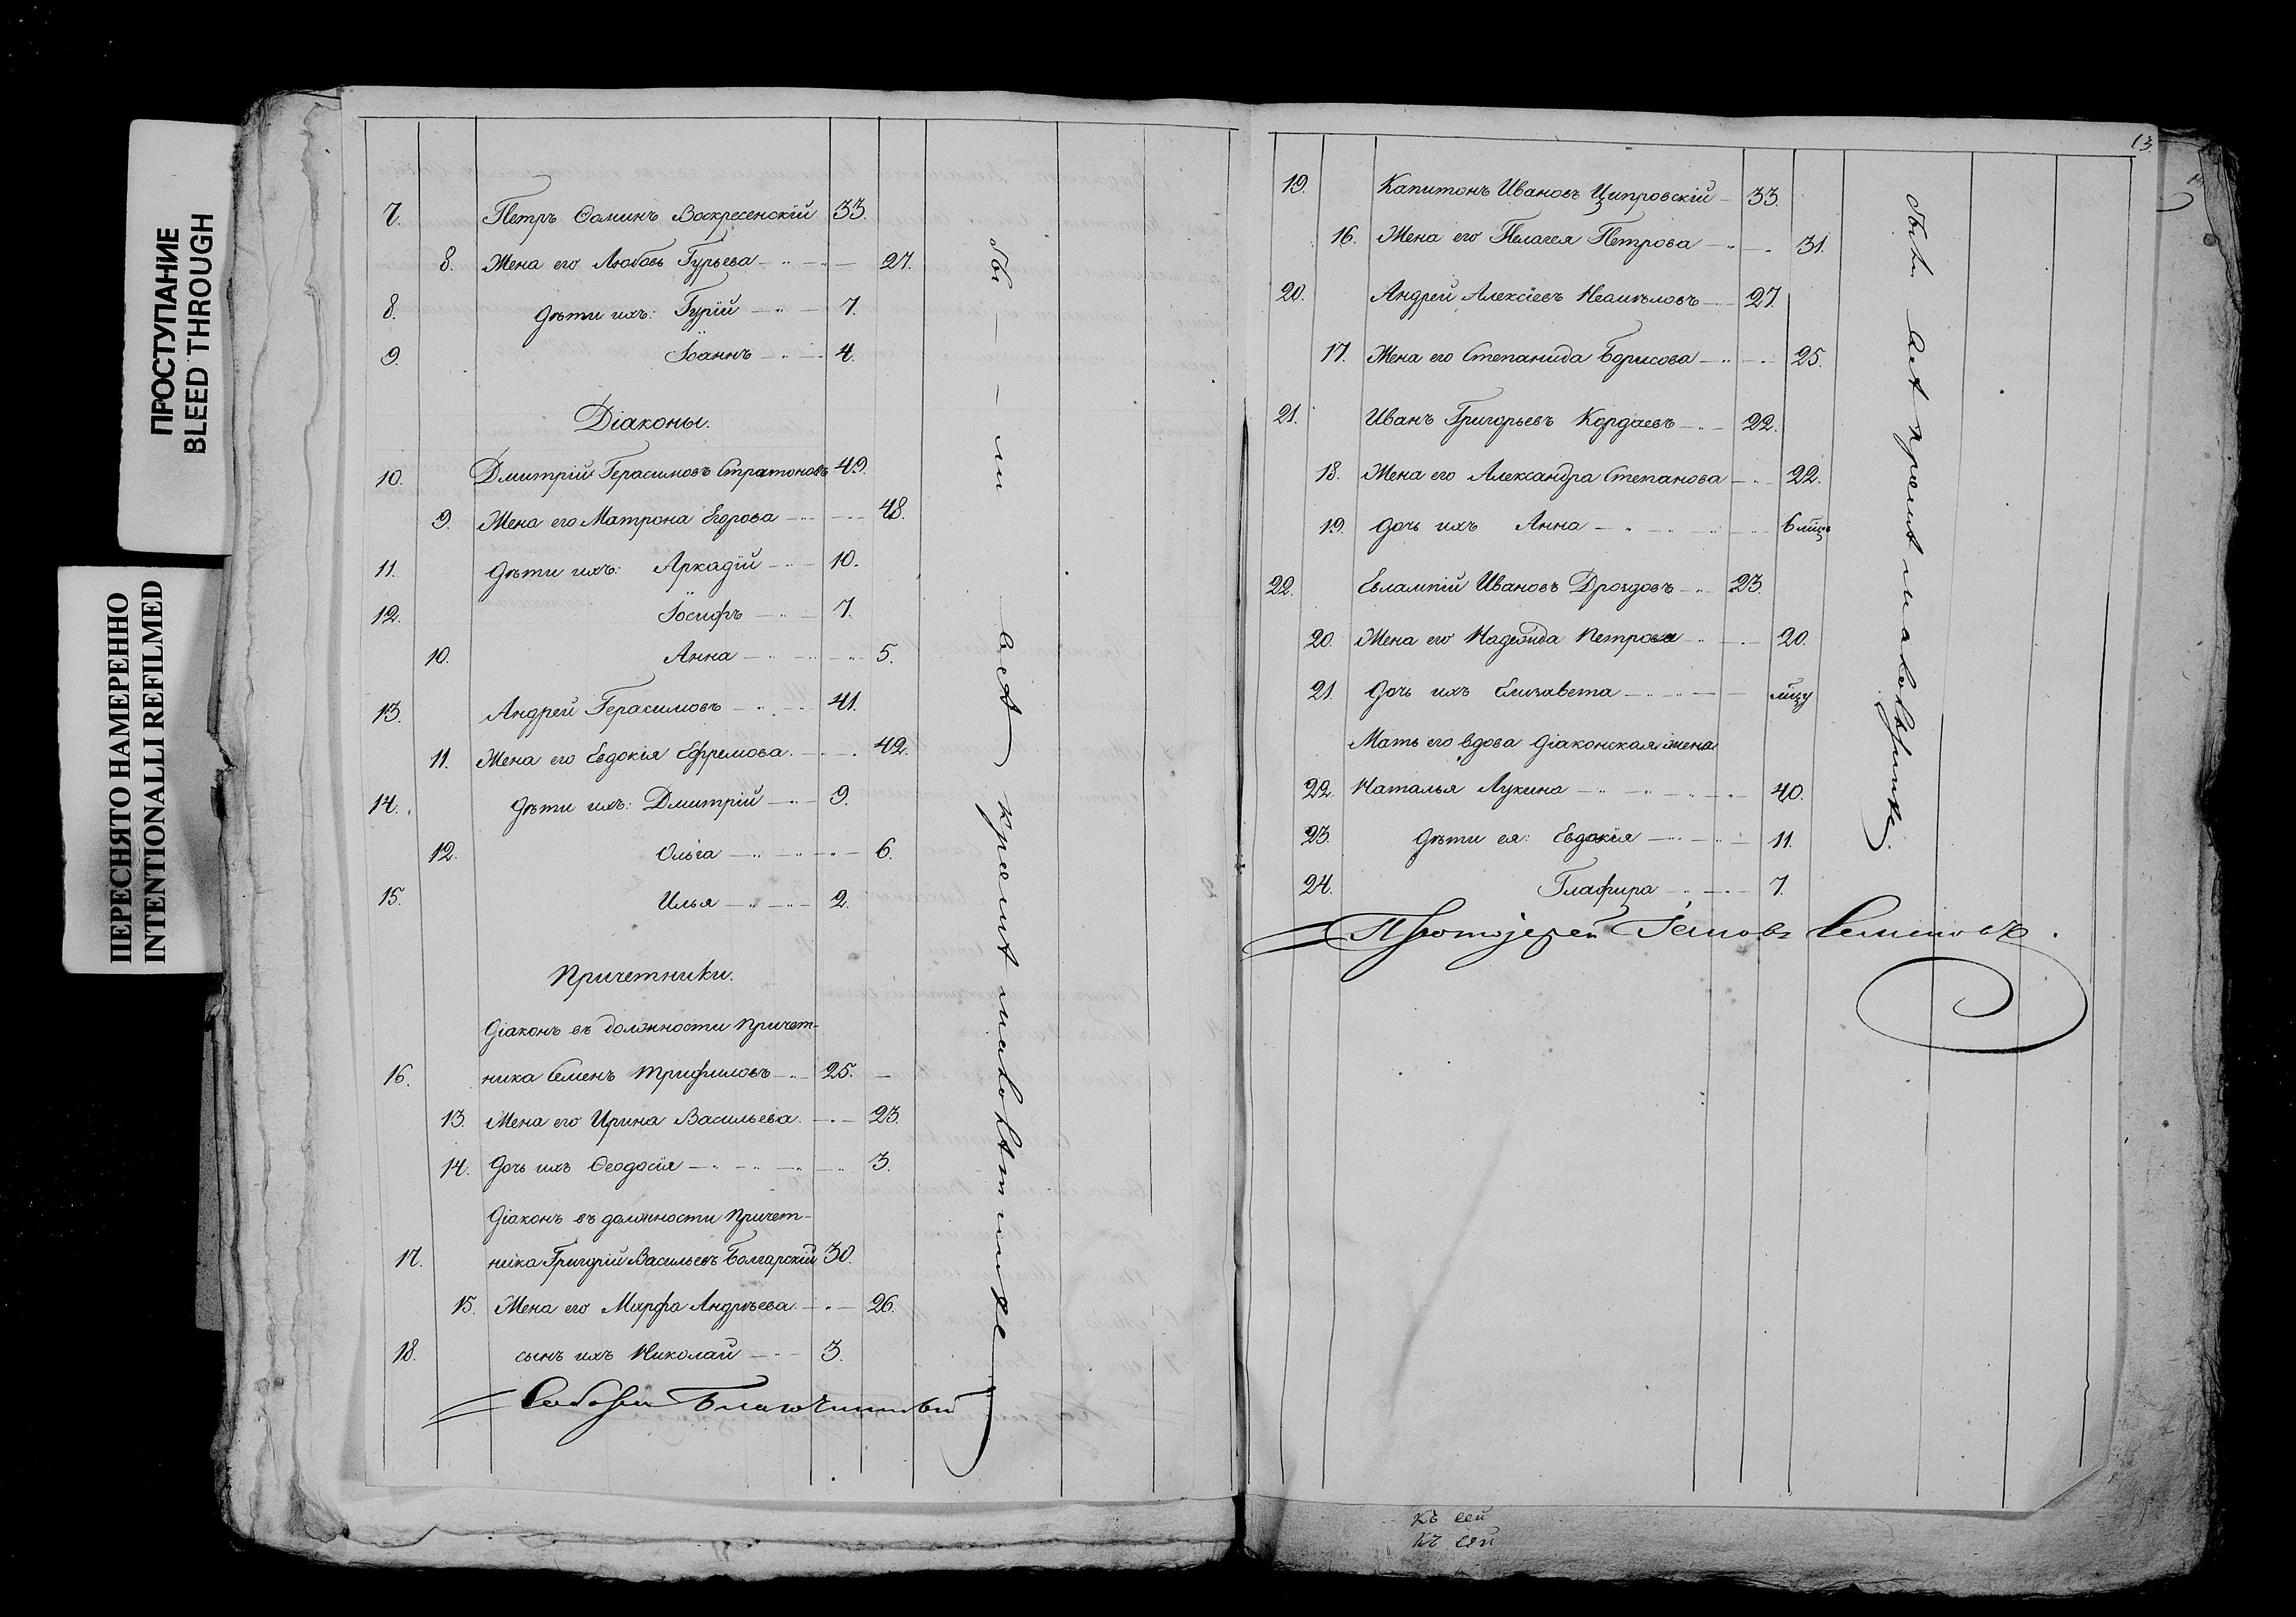 ПРОСТУПАНИЕ
BLEED THROUGH
ПЕРЕСНЯТО НАМЕРЕННО
INTENTIONALLI REFILMED
7. Петръ Ѳоминъ Воскресенскій 33.
8. Жена его Любовь Гурьева 27.
8. Дѣти ихъ: Гурій 7.
9. Іоаннъ 4.
Діаконы.
10. Дмитрій Герасимовъ Стратоновъ 49.
9. Жена его Матрона Егорова 48.
11. Дѣти ихъ: Аркадій 10.
12. Іосифъ 7.
10. Анна 5.
13. Андрей Герасимовъ 41.
11. Жена его Евдокія Ефремова. 42.
14. Дѣти ихъ: Дмитрій 9.
12. Ольга 6.
15. Илья 2.
Причетники.
Діаконъ въ должности Причет-
16. ника Семенъ Трифиловъ 25.
13. Жена его Ирина Васильева. 23.
14. Дочь ихъ Ѳеодосія 3.
Діаконъ въ должности Причет-
17. ника Григорій Васильевъ Болгарскій 30.
15. Жена его Марфа Андрѣева. 26.
18. сынъ ихъ Николай 3.
бы ли
13.
19. Капитонъ Ивановъ Ципровскій 33.
16. Жена его Пелагея Петрова 31.
20. Андрей Алексіевъ 27.
17. Жена его Степанида Борисова 25.
21. Иванъ Григорьевъ Кордаевъ 22.
18. Жена его Александра Степанова 22.
19. Дочь ихъ Анна 6 мѣц.
22. Евлампій Ивановъ Дроздовъ 23.
20. Жена его Надежда Петрова 20.
21. Дочь ихъ Елизавета мѣцу
Мать его вдова діаконская жена
22. Наталья Лукина 40.
23. Дѣти ея: Евдокія 11.
24. Глафира 7.
Протоіерей Семеновъ.
были
къ сей
къ сей